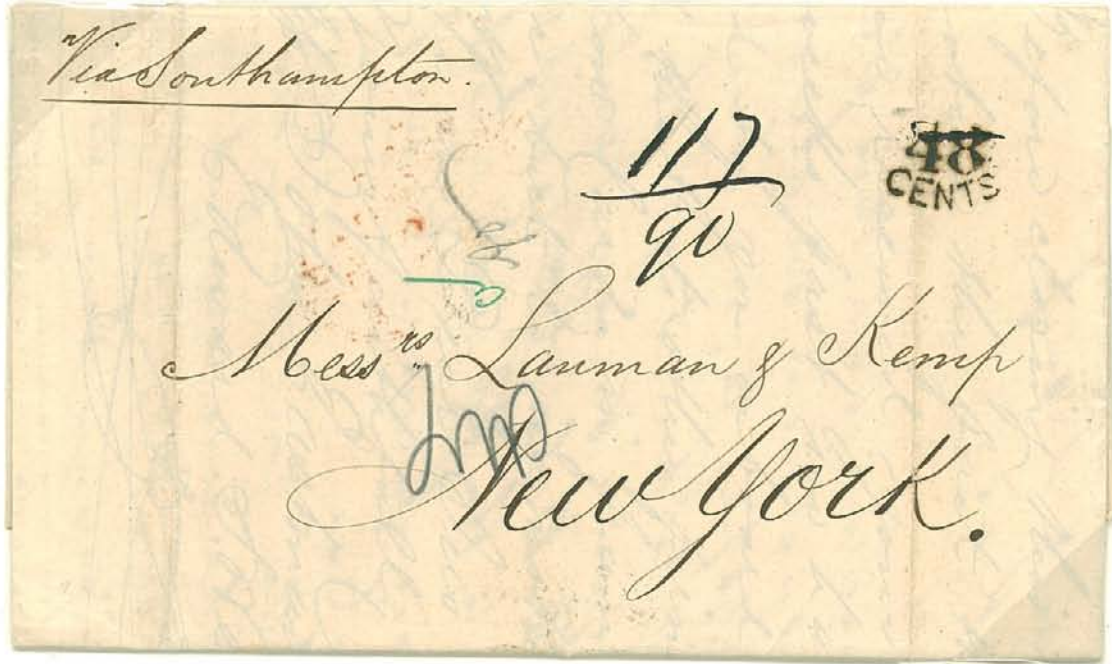 Via Southampton.
117
90
48
CENTS
Messrs Lanman & Kemp
New York.